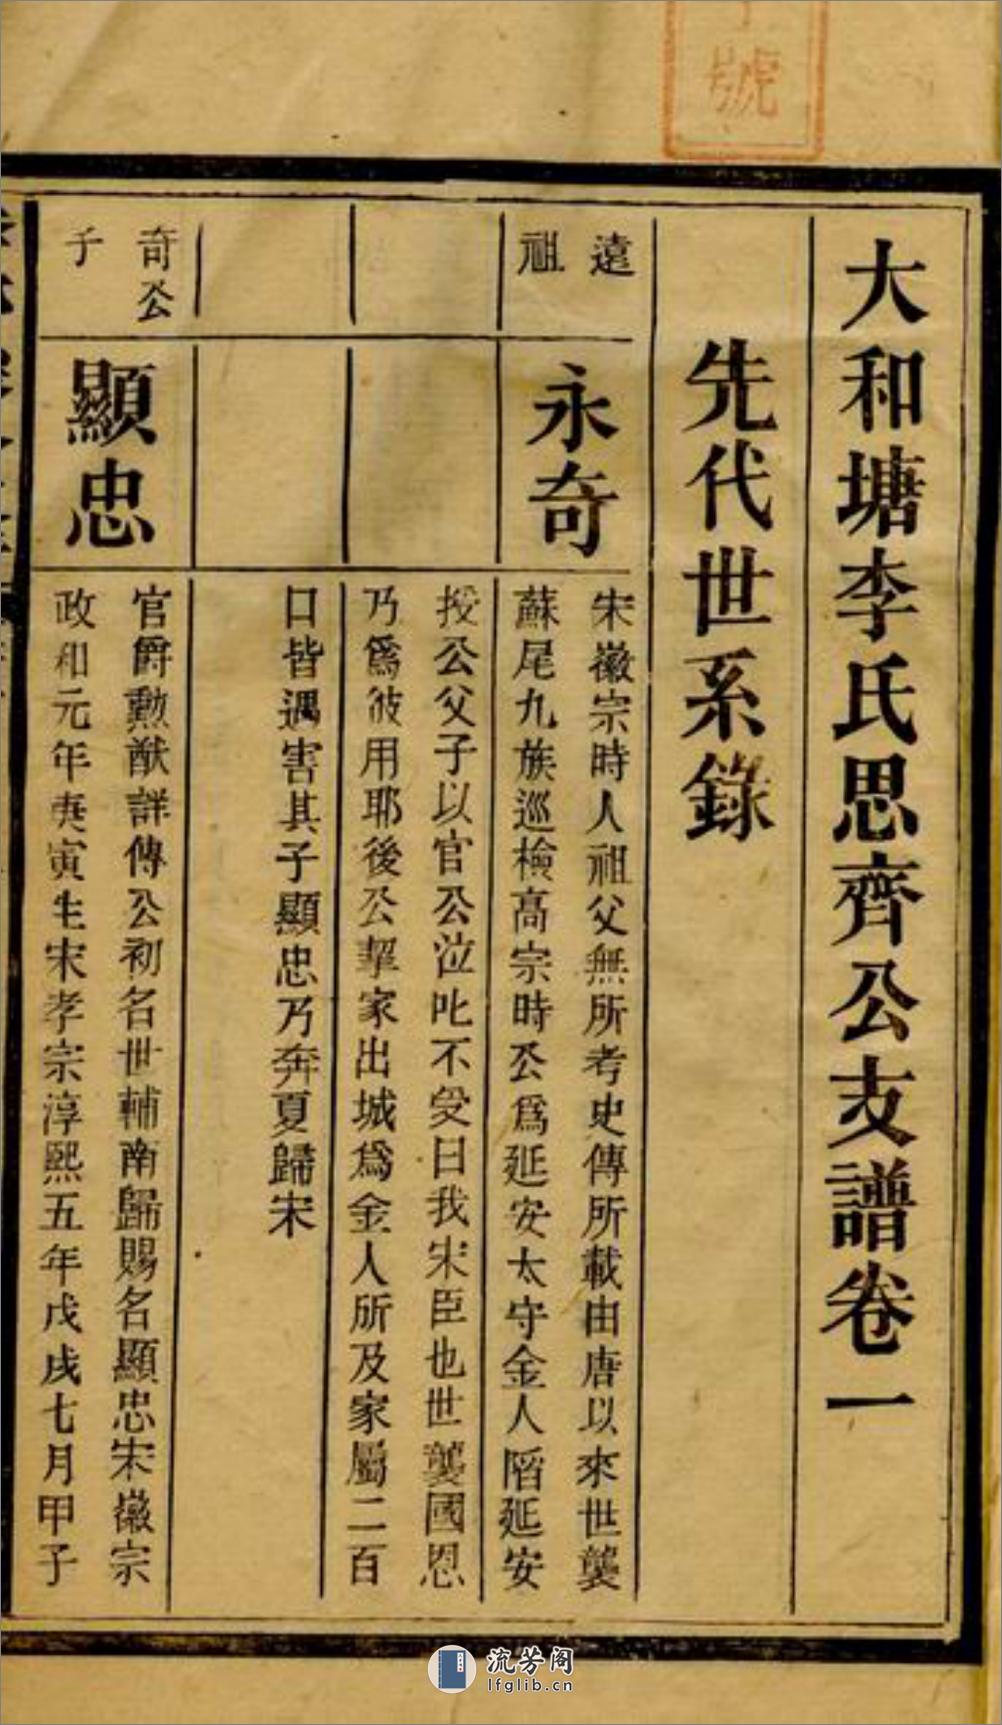 號
大和塘李氏思齊公支譜卷一
先代世系錄
遠
祖
永奇
宋徽宗時人祖父無所考史傳所載由唐以來世襲
蘇尾九族巡檢高宗時公爲延安太守金人陷延安
授公父子以官公泣叱不受曰我宋臣也世襲國恩
乃爲彼用耶後公挈家出城爲金人所及家屬二百
口皆遇害其子顯忠乃奔夏歸宋
奇公
子
顯忠
官爵勲猷詳傳公初名世輔南歸賜名顯忠宋徽宗
政和元年庚寅生宋孝宗淳熙五年戊戌七月甲子
流芳阁
lfglib.cn